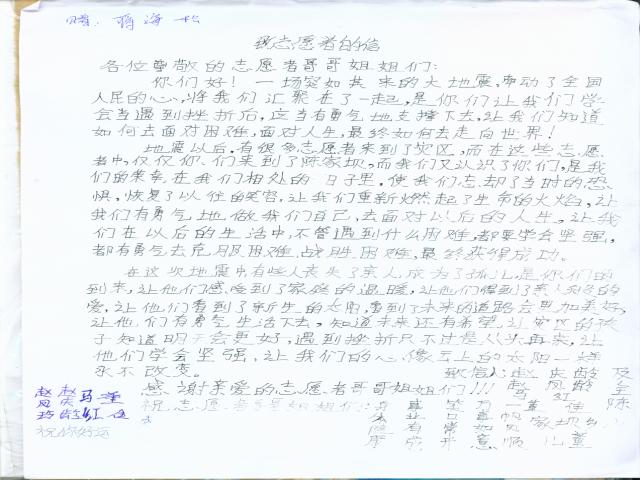 赠：蒋海松
致志愿者的信
各位尊敬的志愿者哥哥姐姐们：
你们好！一场突如其来的大地震，牵动了全国
人民的心，将我们汇聚在了一起，是你们让我们学
会当遇到挫折后，应当有勇气地支撑下去，让我们知道
如何去面对困难，面对人生，最终如何去走向世界！
地震以后，有很多志愿者来到了灾区，而在这些志愿
者中，仅仅你们来到了陈家坝，而我们又认识了你们，是我
们的荣幸，在我们相处的日子里，使我们忘却了当时的恐
惧，恢复了以往的笑容，让我们重新燃起了生命的火焰，让
我们有勇气地做我们自己，去面对以后的人生，让我
们在以后的生活中，不管遇到什么困难，都要学会坚强，
都有勇气去克服困难，战胜困难，最终获得成功。
在这次地震中有些人丧失了亲人，成为了孤儿，是你们的
到来，让他们感受到了家庭的温暖，让他们得到了亲人的
爱，让他们看到了新生的太阳，看到了未来的道路会更加美好，
让他们有勇气生活下去，知道未来还有希望，让灾区的孩
子知道明天会更好，遇到挫折只不过是从头再来，让
他们学会坚强，让我们的心像天上的太阳一样
永不改变。
致信人：赵庆龄 及
感谢亲爱的志愿者哥哥姐姐们！！！
赵凤玲
赵庆龄
马红
董佳
祝志愿者哥哥姐姐们：
祝你好运